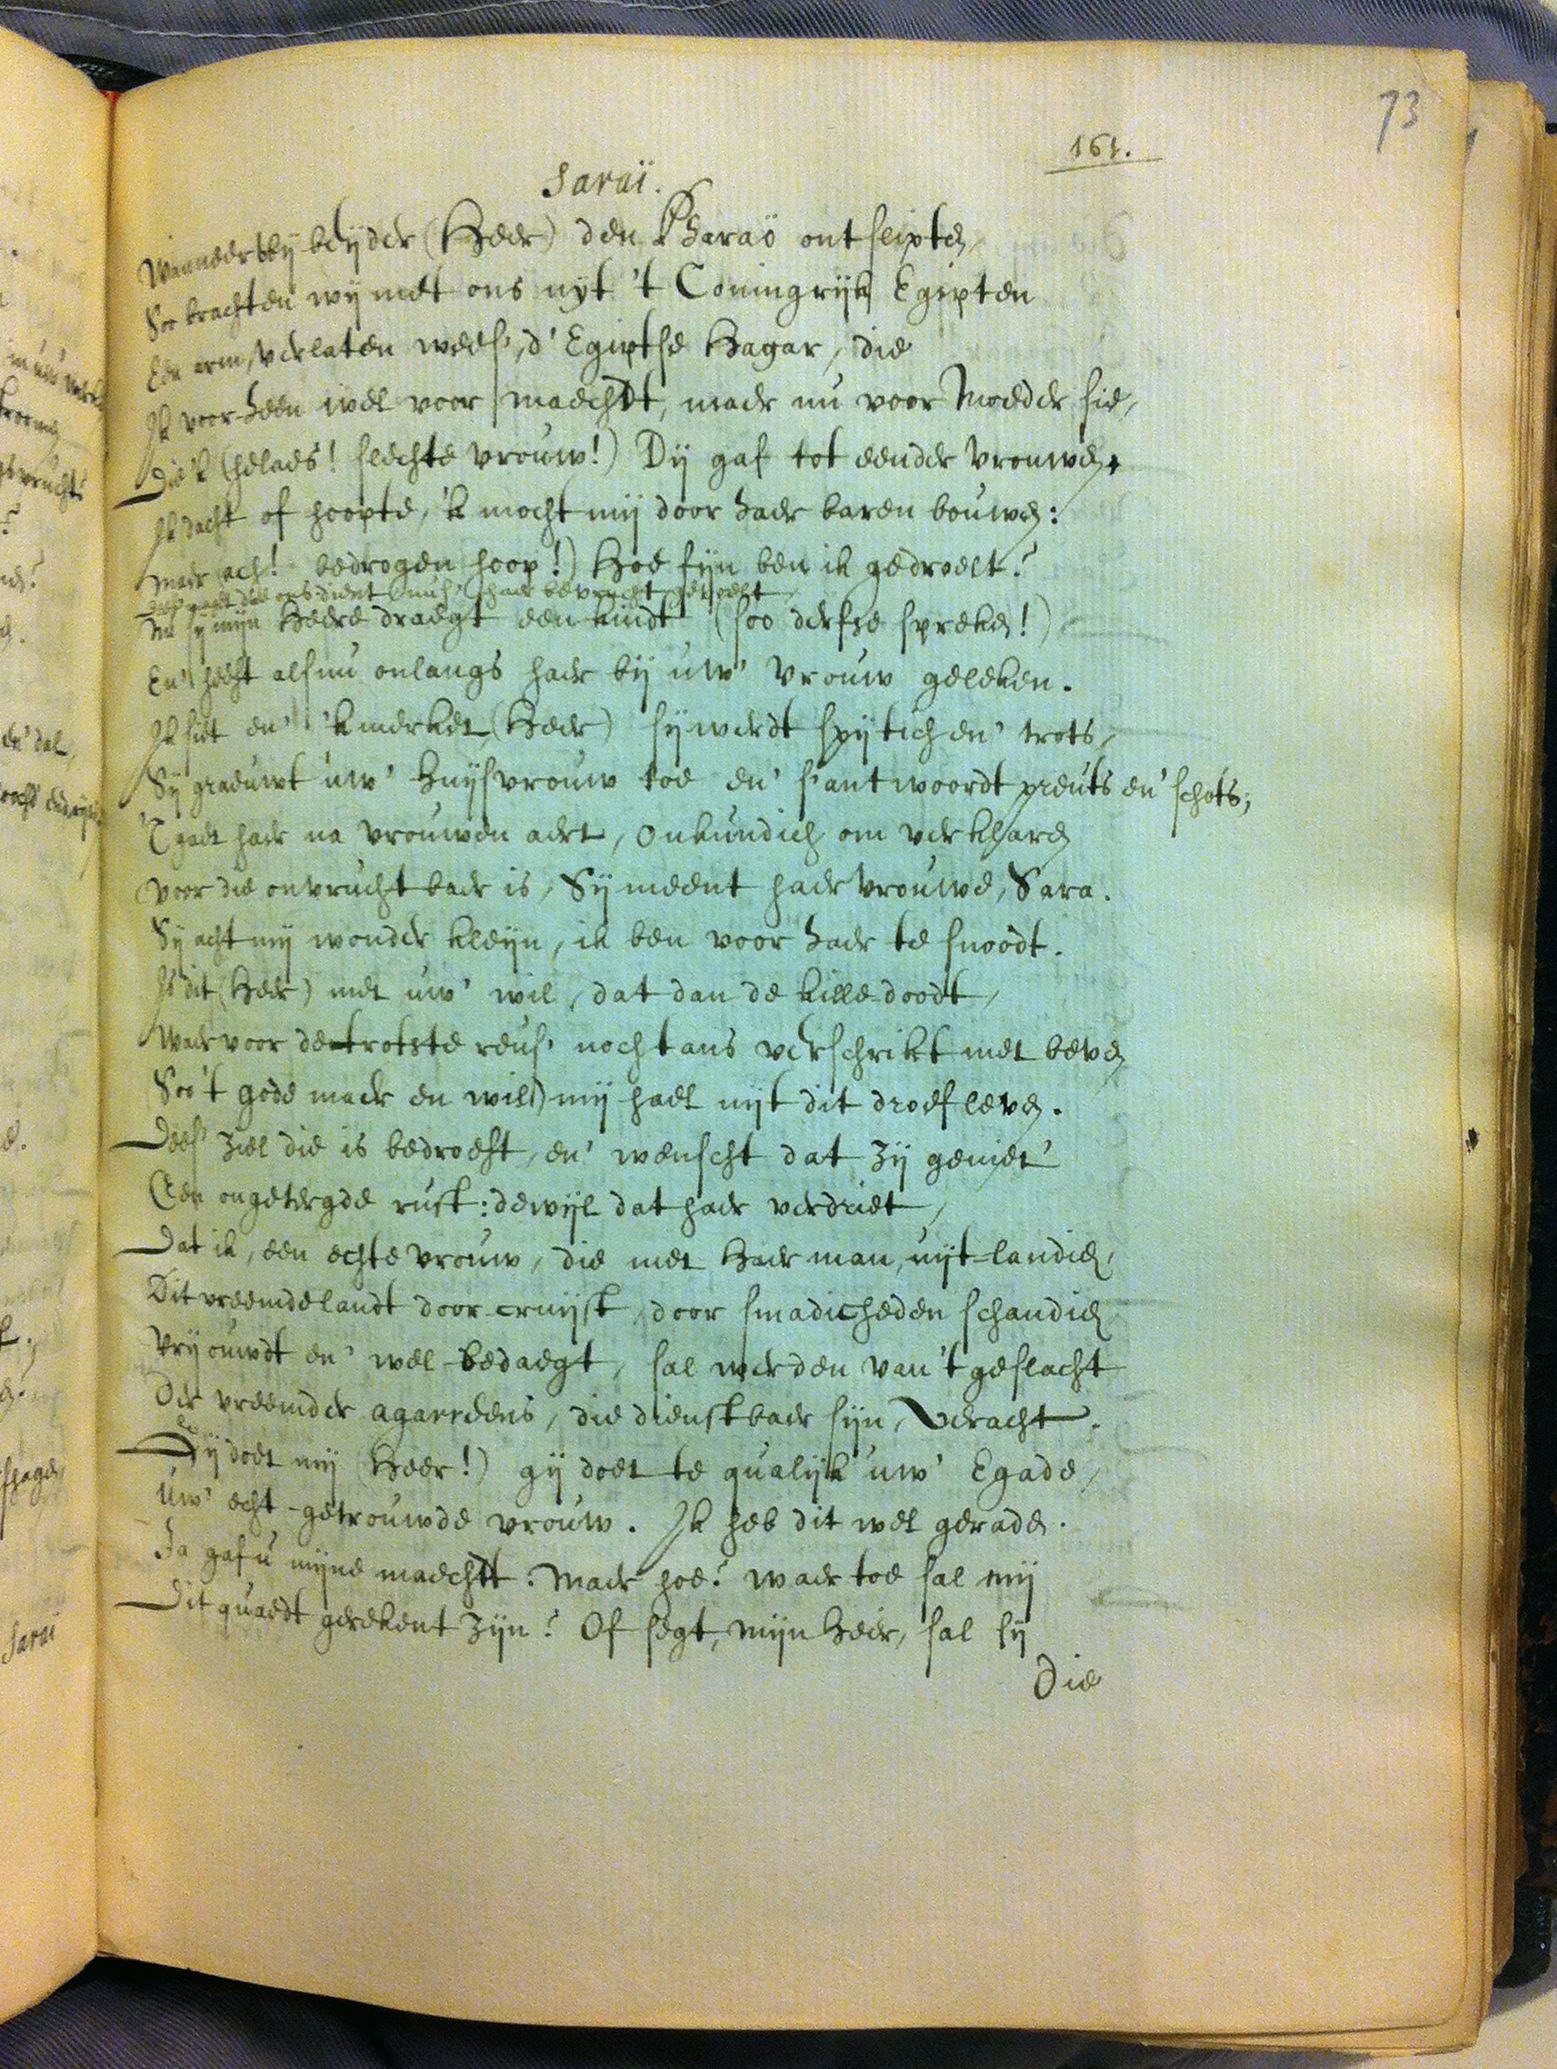 73
161.
Saraï.
Wanneer wy beyder (Heer) den Pharaö ontslipten,
Soo brachten wij met ons uyt 't Coningrijk Egipten
Een arm, verlaten wees', d' Egiptse Hagar, die
Ik voor-heen wel voor maechdt, maer nu voor Moeder sie,
Die 'k (helaes! slechte vrouw!) Dij gaf tot eender vrouwen,
Ik dacht of hoopte, 'k mocht mij door haer baren bouwen:
Maer ach! bedrogen hoop!) Hoe fijn ben ik gedroelt?
die ons dient haer bevrucht gevoelt
Nu sij mijn Heere draegt een kindt (soo derfse spreken!)
En' heeft alsnu onlangs haer bij uw' vrouw geleken.
Ik siet en' 'k merket (Heer) sij werdt spijtich en' trots,
Sij graeuwt uw' Huysvrouw toe en' s'antwoordt preuts en' schots;
't gaet haer na vrouwen aert, onkundich om verklaren
voor die onvruchtbaer is, Sij meent haer vrouwe, Sara.
Sij acht mij wonder kleijn, ik ben voor haer te snoodt.
Is dit (Heer) met uw' wil, dat dan de kille doodt,
Waer voor de trotste reus' nochtans verschrikt met beven
Soo 't gode maer en wil) mij hael uijt dit droef leven.
Dees' ziel die is bedroeft, en' wenscht dat zij geniet'
Een ongetergde rust: dewijl dat haer verdriet,
Dat ik, een echte vrouw, die met Haer man, uijt-landich,
Dit vreemde landt door-cruijst, door smadicheden schandich
Vrij ouwdt en' wel-bedaegt, sal werden van 't geslacht
Der vreemder agareens, die dienstbaer sijn, Veracht.
Gij doet mij (Heer!) gij doet te qualijk uw' Egade,
Uw' echt-getrouwde vrouw. Ik heb dit wel geraden.
Ja gaf u mijne maechdt. Maer hoe? waer toe sal mij
Dit quaedt gerekent zijn? Of segt, mijn Heer, sal sij
Die
Sarai